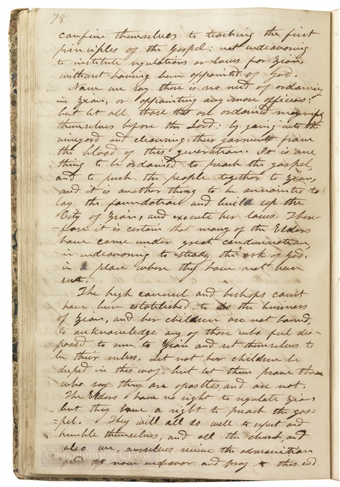 78
confine themselves to teaching the first
principles of the Gospel: not endeavoring
to institute regulations or laws for Zion,
without having been appointed of God.
Now we say there is no need of ordaining
in Zion, or appointing any more officers;
but let all those that are ordained magnify
themselves before the Lord, by going into the
vineyard and cleansing their garments from
the blood of this generation. It is one
thing to be ordained to preach the gospel,
and to push the people together to Zion,
and it is another thing to be annointed to
lay the foundation and build up the
City of Zion, and execute her laws. There-
-fore it is certain that many of the Elders
have come under great condemnation,
in endeavoring to steady the ark of God.
in a place where they have not been
sent.
The high council and bishops court
have been established to do the business
of Zion, and her children are not bound
to acknowledge any of those who feel dis-
posed to run to Zion and set themselves to
be their rulers. Let not her children be
duped in this way, but let them prove those
who say they are apostles and are not.
The Elders have no right to regulate Zion,
but they have a right to preach the gos-
-pel. They will all do well to repent and
humble themselves, and all the church, and
also we, ourselves receive the admonition
and do now endeavor and pray to this end